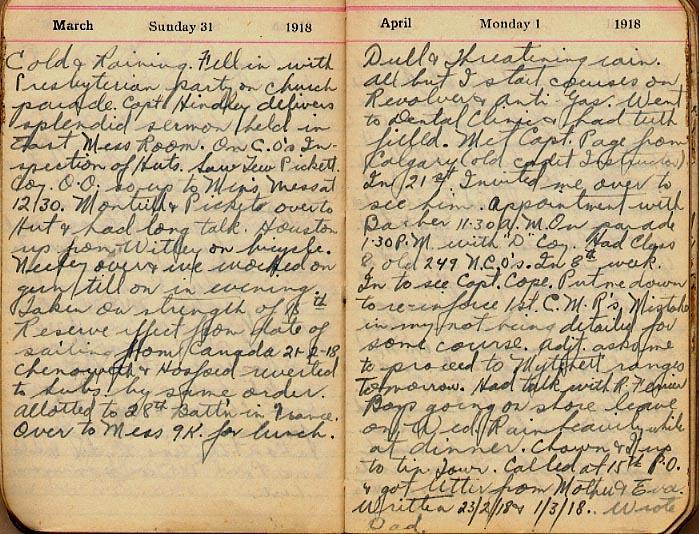 March Sunday 31 1918
Cold & Raining. Fell in with
Presbyterian party on church
parade. Capt. Hindley delivers
splendid sermon held in
East Mess Room. On C.O's In-
spection of Huts. Saw Lew Pickett.
Coy. O.O. so up to Men's Mess at
12/30. & Pickets over to
Hut & had long talk. Houston
up from Witley on bicycle.
over & we worked on
gun till on in evening.
Taken on strength of 18th
Reserve effect from date of
sailing from Canada 21-2-18
Chenoweth & reverted
to subs. by same order.
Allotted to 28th Battn in France.
Over to Mess 9K. for lunch.
April Monday 1 1918
Dull & Threatening rain.
All but I start courses on
Revolver & Anti-Gas. Went
to Dental Clinic & had tuth
filled. Met Capt. Page from
Calgary (old cadit Instructor)
In 21st. Invited me over to
see him. Appointment with
Barber 11-30 A.M. On parade
1:30 P.M. with "D" Coy. Had Class
8 old 249 N.C.O's. In 8th week.
In to see Capt. Cope. Put me down
to re-inforce 1st. C.M.R's, Mistake
in my not being detailed for
some course. Adjt. asks me
to proceed to Mytchett ranges
tomorrow. Had talk with R.
Boys going on shore leave
on Wed. Rain heavily while
at dinner. Chown & I up
to tin Town. Called at 15th P.O.
& got letter from Mother & Eva.
Written 23/2/18 & 1/3/18. Wrote
Dad.